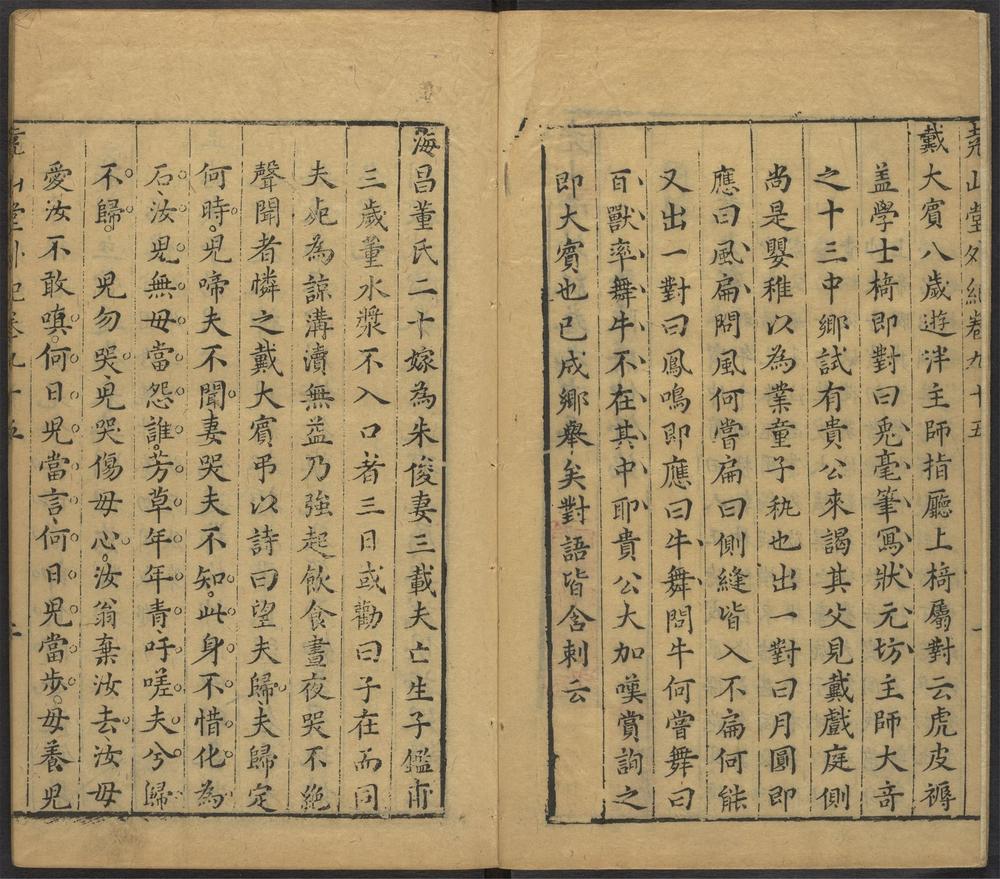 堯山堂外紀卷九十五
戴大賓八歲遊泮主師指廳上椅屬對云虎皮褥
盖學士椅即對曰兎毫筆寫狀元坊主師大奇
之十三中鄉試有貴公來謁其父見戴戲庭側
尚是嬰稚以為業童子秇也出一對曰月圓即
應曰風扁問風何嘗扁曰側縫皆入不扁何能
又出一對曰鳳鳴即應曰牛舞問牛何嘗舞曰
百獸率舞牛不在其中耶貴公大加嘆賞詢之
即大賓也已成鄉舉矣對語皆含刺云
海昌董氏二十嫁為朱俊妻三載夫亡生子鑑甫
三歲董水漿不入口者三日或勸曰子在而同
夫死為諒溝瀆無益乃強起飲食晝夜哭不絕
聲聞者憐之戴大賓弔以詩曰望夫歸夫歸定
何時。兒啼夫不聞妻哭夫不知。此身不惜化為
石、汝兒無母當怨誰。芳草年年青、呼嗟夫兮歸
不歸。兒勿哭、兒哭傷母心。汝翁棄汝去、汝母
愛汝不敢嗔。何日兒當言、何日兒當步。母養兒
堯山堂外紀卷九十五 一